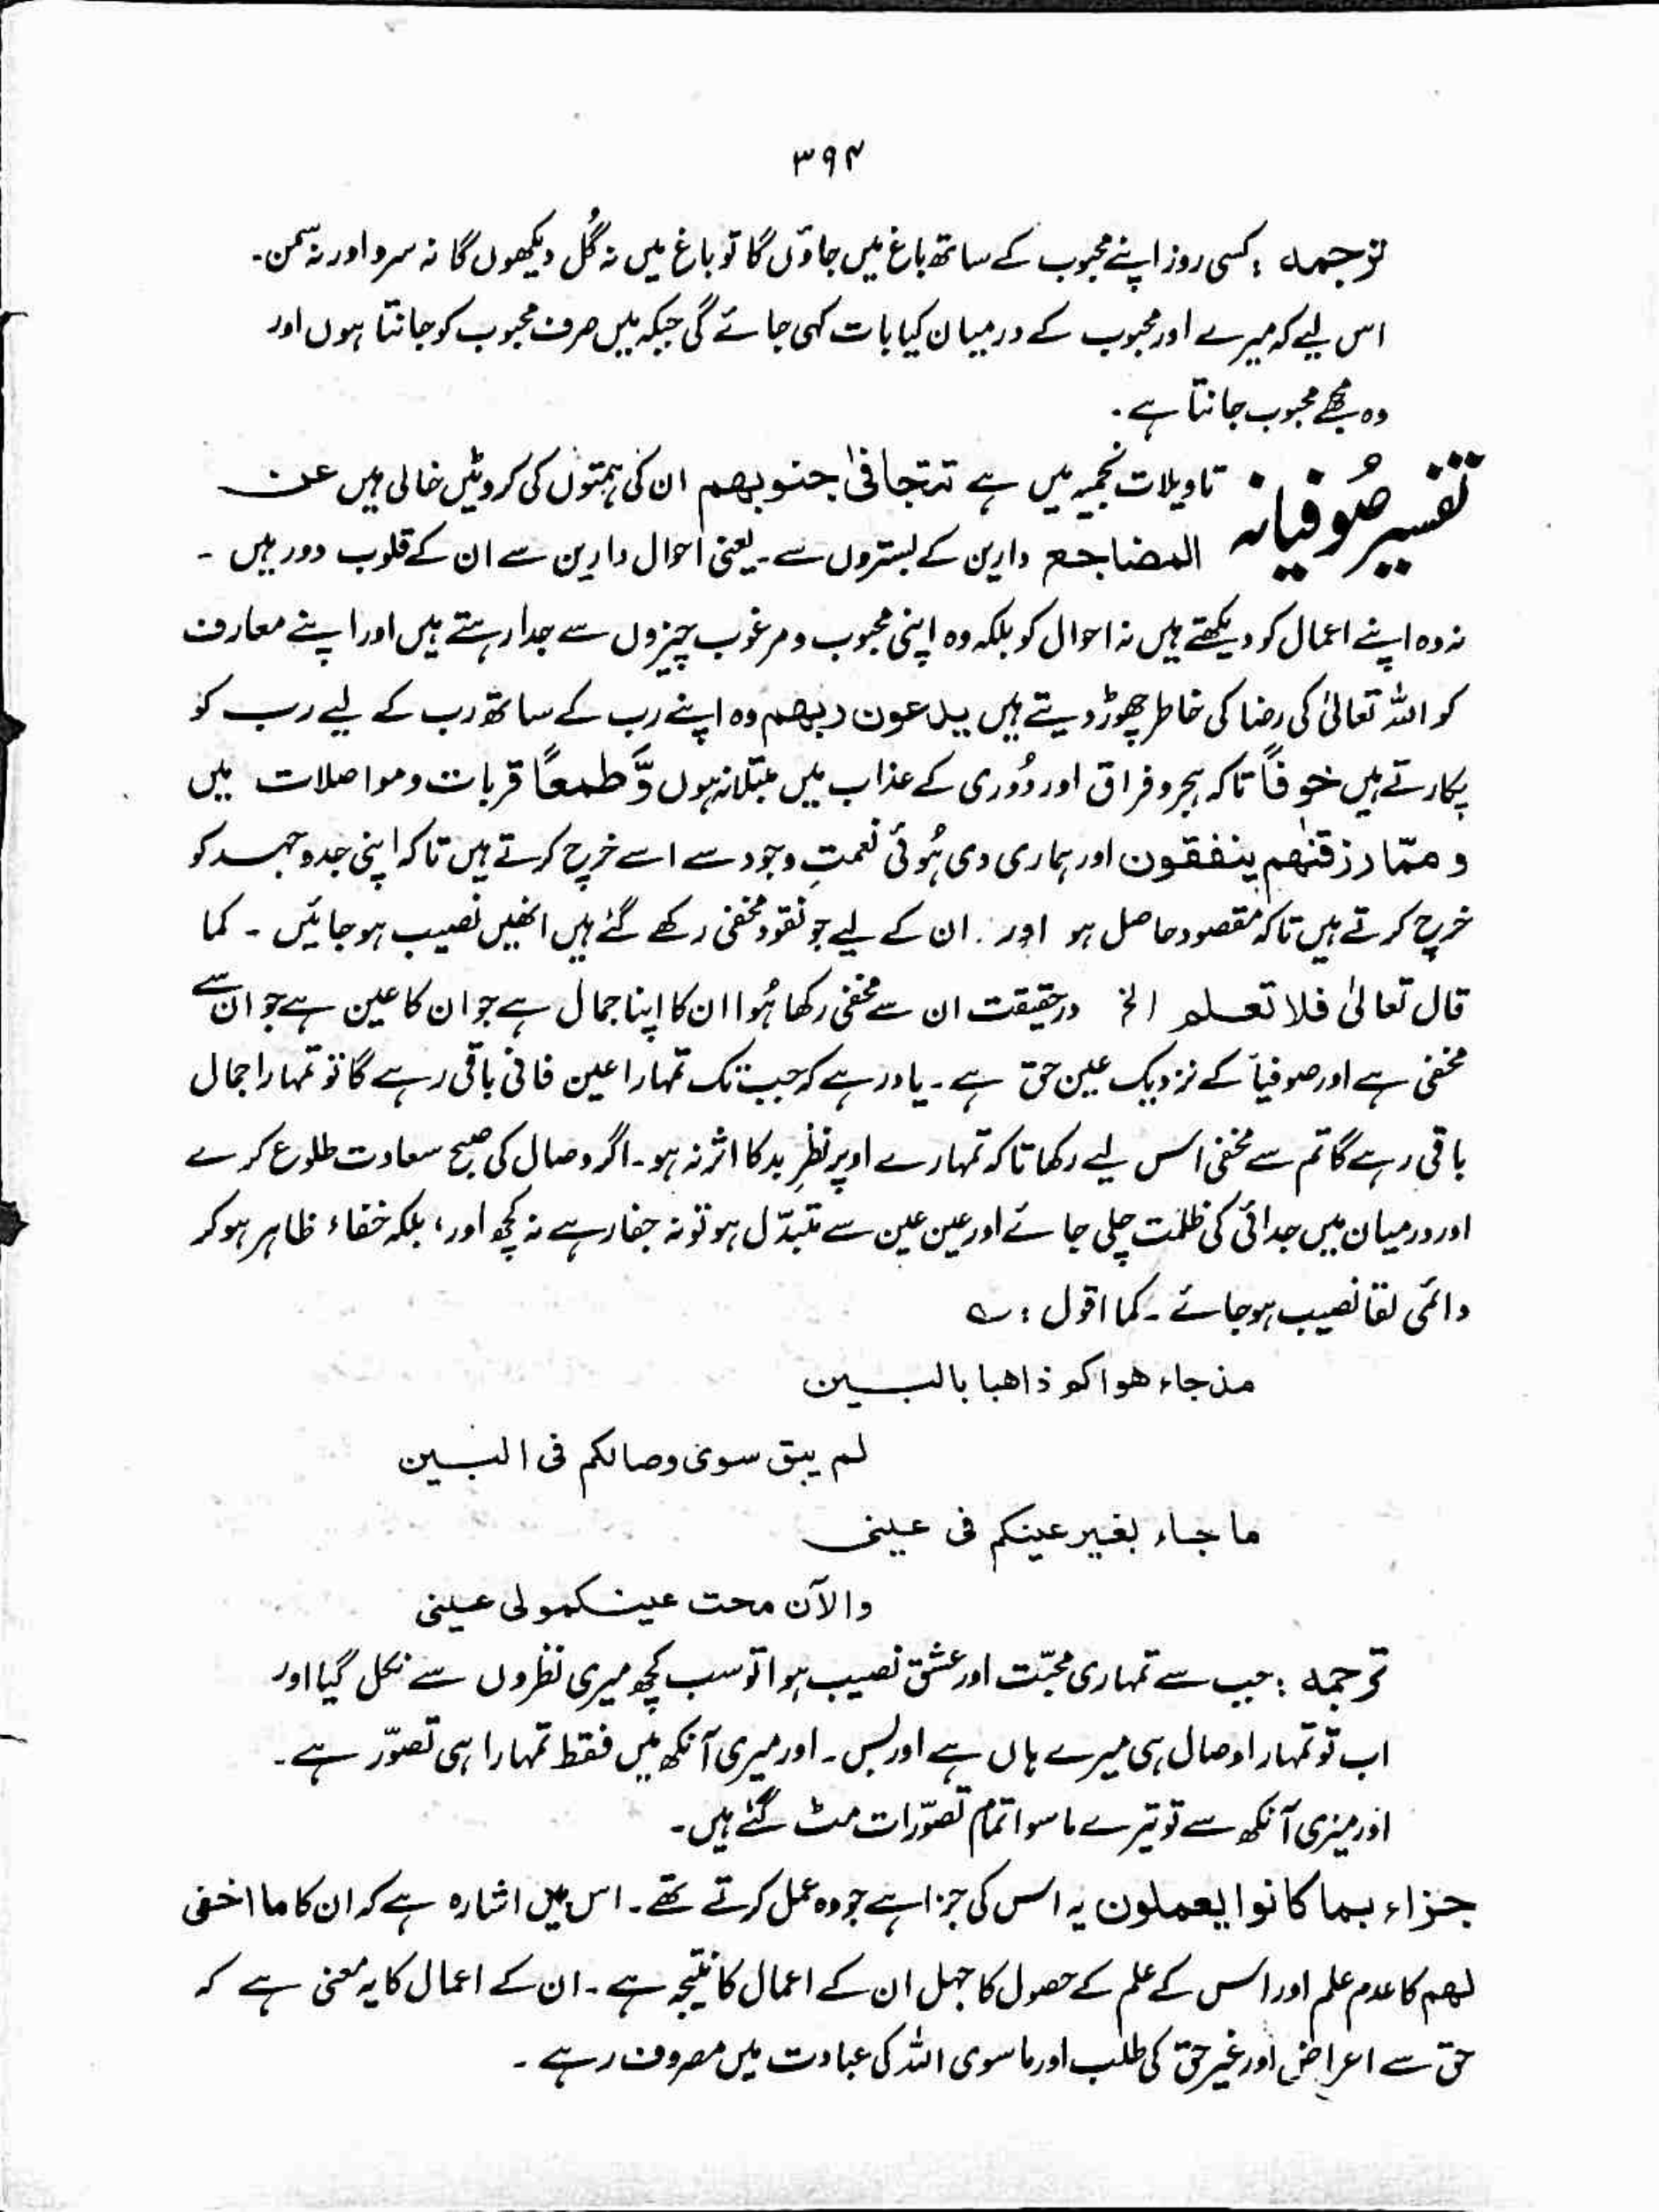 ۳۹۴
ترجمہ : کسی روز اپنے محبوب کے ساتھ باغ میں جاؤں گا تو باغ میں نہ گُل دیکھوں گا نہ سرو اور نہ سمن۔
اس لیے کہ میرے اور محبوب کے درمیان کیا بات کہی جائے گی جبکہ میں صرف محبوب کو جانتا ہوں اور
وہ مجھے محبوب جانتا ہے۔
تفسیر صُوفیانہ تاویلات نجمیہ میں ہے تتجافیٰ جنوبھم ان کی ہمتوں کی کروٹیں خالی ہیں عن
المضاجع دارین کے بستروں سے۔ یعنی احوال دارین سے ان کے قلوب دور ہیں ۔
نہ وہ اپنے اعمال کو دیکھتے ہیں نہ احوال کو بلکہ وہ اپنی محبوب و مرغوب چیزوں سے جدا رہتے ہیں اور اپنے معارف
کو اللہ تعالیٰ کی رضا کی خاطر چھوڑ دیتے ہیں یدعون ربھم وہ اپنے رب کے ساتھ رب کے لیے رب کو
پکارتے ہیں خوفاً تاکہ ہجر و فراق اور دُوری کے عذاب میں مبتلا نہ ہوں وَّطمعًا قربات و مواصلات میں
و ممّا رزقنٰھم ینفقون اور ہماری دی ہُوئی نعمتِ وجود سے اسے خرچ کرتے ہیں تاکہ اپنی جدوجہد کو
خرچ کرتے ہیں تاکہ مقصود حاصل ہو اور ان کے لیے جو نقود مخفی رکھے گئے ہیں انھیں نصیب ہو جائیں ۔ کما
قال تعالیٰ فلا تعلم الخ درحقیقت ان سے مخفی رکھا ہُوا ان کا اپنا جمال ہے جو ان کا عین ہے جو ان سے
مخفی ہے اور صوفیاً کے نزدیک عین حق ہے ۔ یاد رہے کہ جب تک تمہارا عین فانی باقی رہے گا تو تمہارا جمال
باقی رہے گا تم سے مخفی اس لیے رکھا تاکہ تمہارے اوپر نظرِ بد کا اثر نہ ہو۔ اگر وصال کی صبح سعادت طلوع کرے
اور درمیان میں جدائی کی ظلمت چلی جائے اور عین عین سے متبدّل ہو تو نہ جفا رہے نہ کچھ اور، بلکہ خفاء ظاہر ہو کر
دائمی لقا نصیب ہو جائے ۔ کما اقول : ؎
مذ جاء ھواکو ذاھبا بالبین
لم یبق سوی وصالکم فی البین
ما جاء بغیر عینکم فی عینی
والآن محت عینکمولی عینی
ترجمہ : جب سے تمہاری محبّت اور عشق نصیب ہوا تو سب کچھ میری نظروں سے نکل گیا اور
اب تو تمہارا وصال ہی میرے ہاں ہے اور بس۔ اور میری آنکھ میں فقط تمہارا ہی تصوّر ہے۔
اور میری آنکھ سے تو تیرے ماسوا تمام تصوّرات مٹ گئے ہیں۔
جزاء بما کانوا یعملون یہ اس کی جزا ہے جو وہ عمل کرتے تھے۔ اس میں اشارہ ہے کہ ان کا ما اخفی
لھم کا عدم علم اور اس کے علم کے حصول کا جہل ان کے اعمال کا نتیجہ ہے ۔ ان کے اعمال کا یہ معنی ہے کہ
حق سے اعراض اور غیر حق کی طلب اور ماسوی اللہ کی عبادت میں مصروف رہے ۔